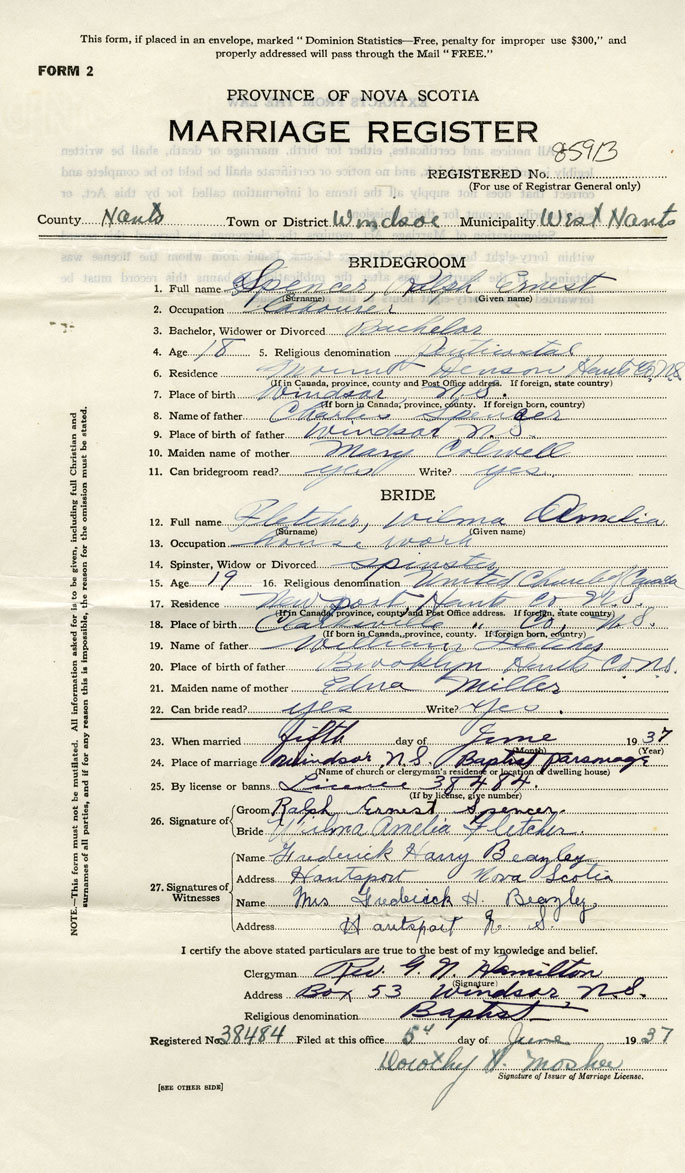 This form, if placed in an envelope, marked "Dominion Statistics—Free, penalty for improper use $300," and
properly addressed will pass through the Mail "FREE."
FORM 2
PROVINCE OF NOVA SCOTIA
MARRIAGE REGISTER
REGISTERED No. 85913
(For use of Registrar General only)
County Hants Town or District Windsor Municipality West Hants
BRIDEGROOM
1. Full name Spencer, Ralph Ernest
(Surname) (Given name)
2. Occupation Labourer
3. Bachelor, Widower or Divorced Bachelor
4. Age 18 5. Religious denomination
6. Residence Mount Denson Hants Co. N.S.
(If in Canada, province, county and Post Office address. If foreign, state country)
7. Place of birth Windsor, N.S.
(If born in Canada, province, county. If foreign born, country)
8. Name of father Charles Spencer
9. Place of birth of father Windsor N.S.
10. Maiden name of mother Mary Colwell
11. Can bridegroom read? yes Write? yes
BRIDE
12. Full name Fletcher, Wilma Amelia
(Surname) (Given name)
13. Occupation house work
14. Spinster, Widow or Divorced spinster
15. Age 19 16. Religious denomination United Church of Canada
17. Residence Newport, Hants Co N.S.
(If in Canada, province, county and Post Office address. If foreign, state country)
18. Place of birth Clarksville " Co, N.S.
(If born in Canada, province, county. If foreign born, country)
19. Name of father William Fletcher
20. Place of birth of father Brooklyn Hants Co N.S.
21. Maiden name of mother Edna Miller
22. Can bride read? yes Write? yes.
23. When married fifth day of June 1937
(Month) (Year)
24. Place of marriage Windsor, N.S. Baptist parsonage
(Name of church or clergyman's residence or location of dwelling house)
25. By license or banns Licence 38484.
(If by license, give number)
26. Signature of Groom Ralph Ernest Spencer.
Bride Wilma Amelia Fletcher.
27. Signatures of Witnesses
Name Frederick Harry Beazley
Address Hantsport Nova Scotia
Name Mrs Frederick H. Beazley
Address Hantsport N. S.
I certify the above stated particulars are true to the best of my knowledge and belief.
Clergyman Rev. G. N. Hamilton
(Signature)
Address Box 53 Windsor N.S.
Religious denomination Baptist
Registered No. 38484 Filed at this office 5th day of June 1937
Dorothy H. Mosher
Signature of Issuer of Marriage License.
[SEE OTHER SIDE]
NOTE.—This form must not be mutilated. All information asked for is to be given, including full Christian and
surnames of all parties, and if for any reason this is impossible, the reason for the omission must be stated.